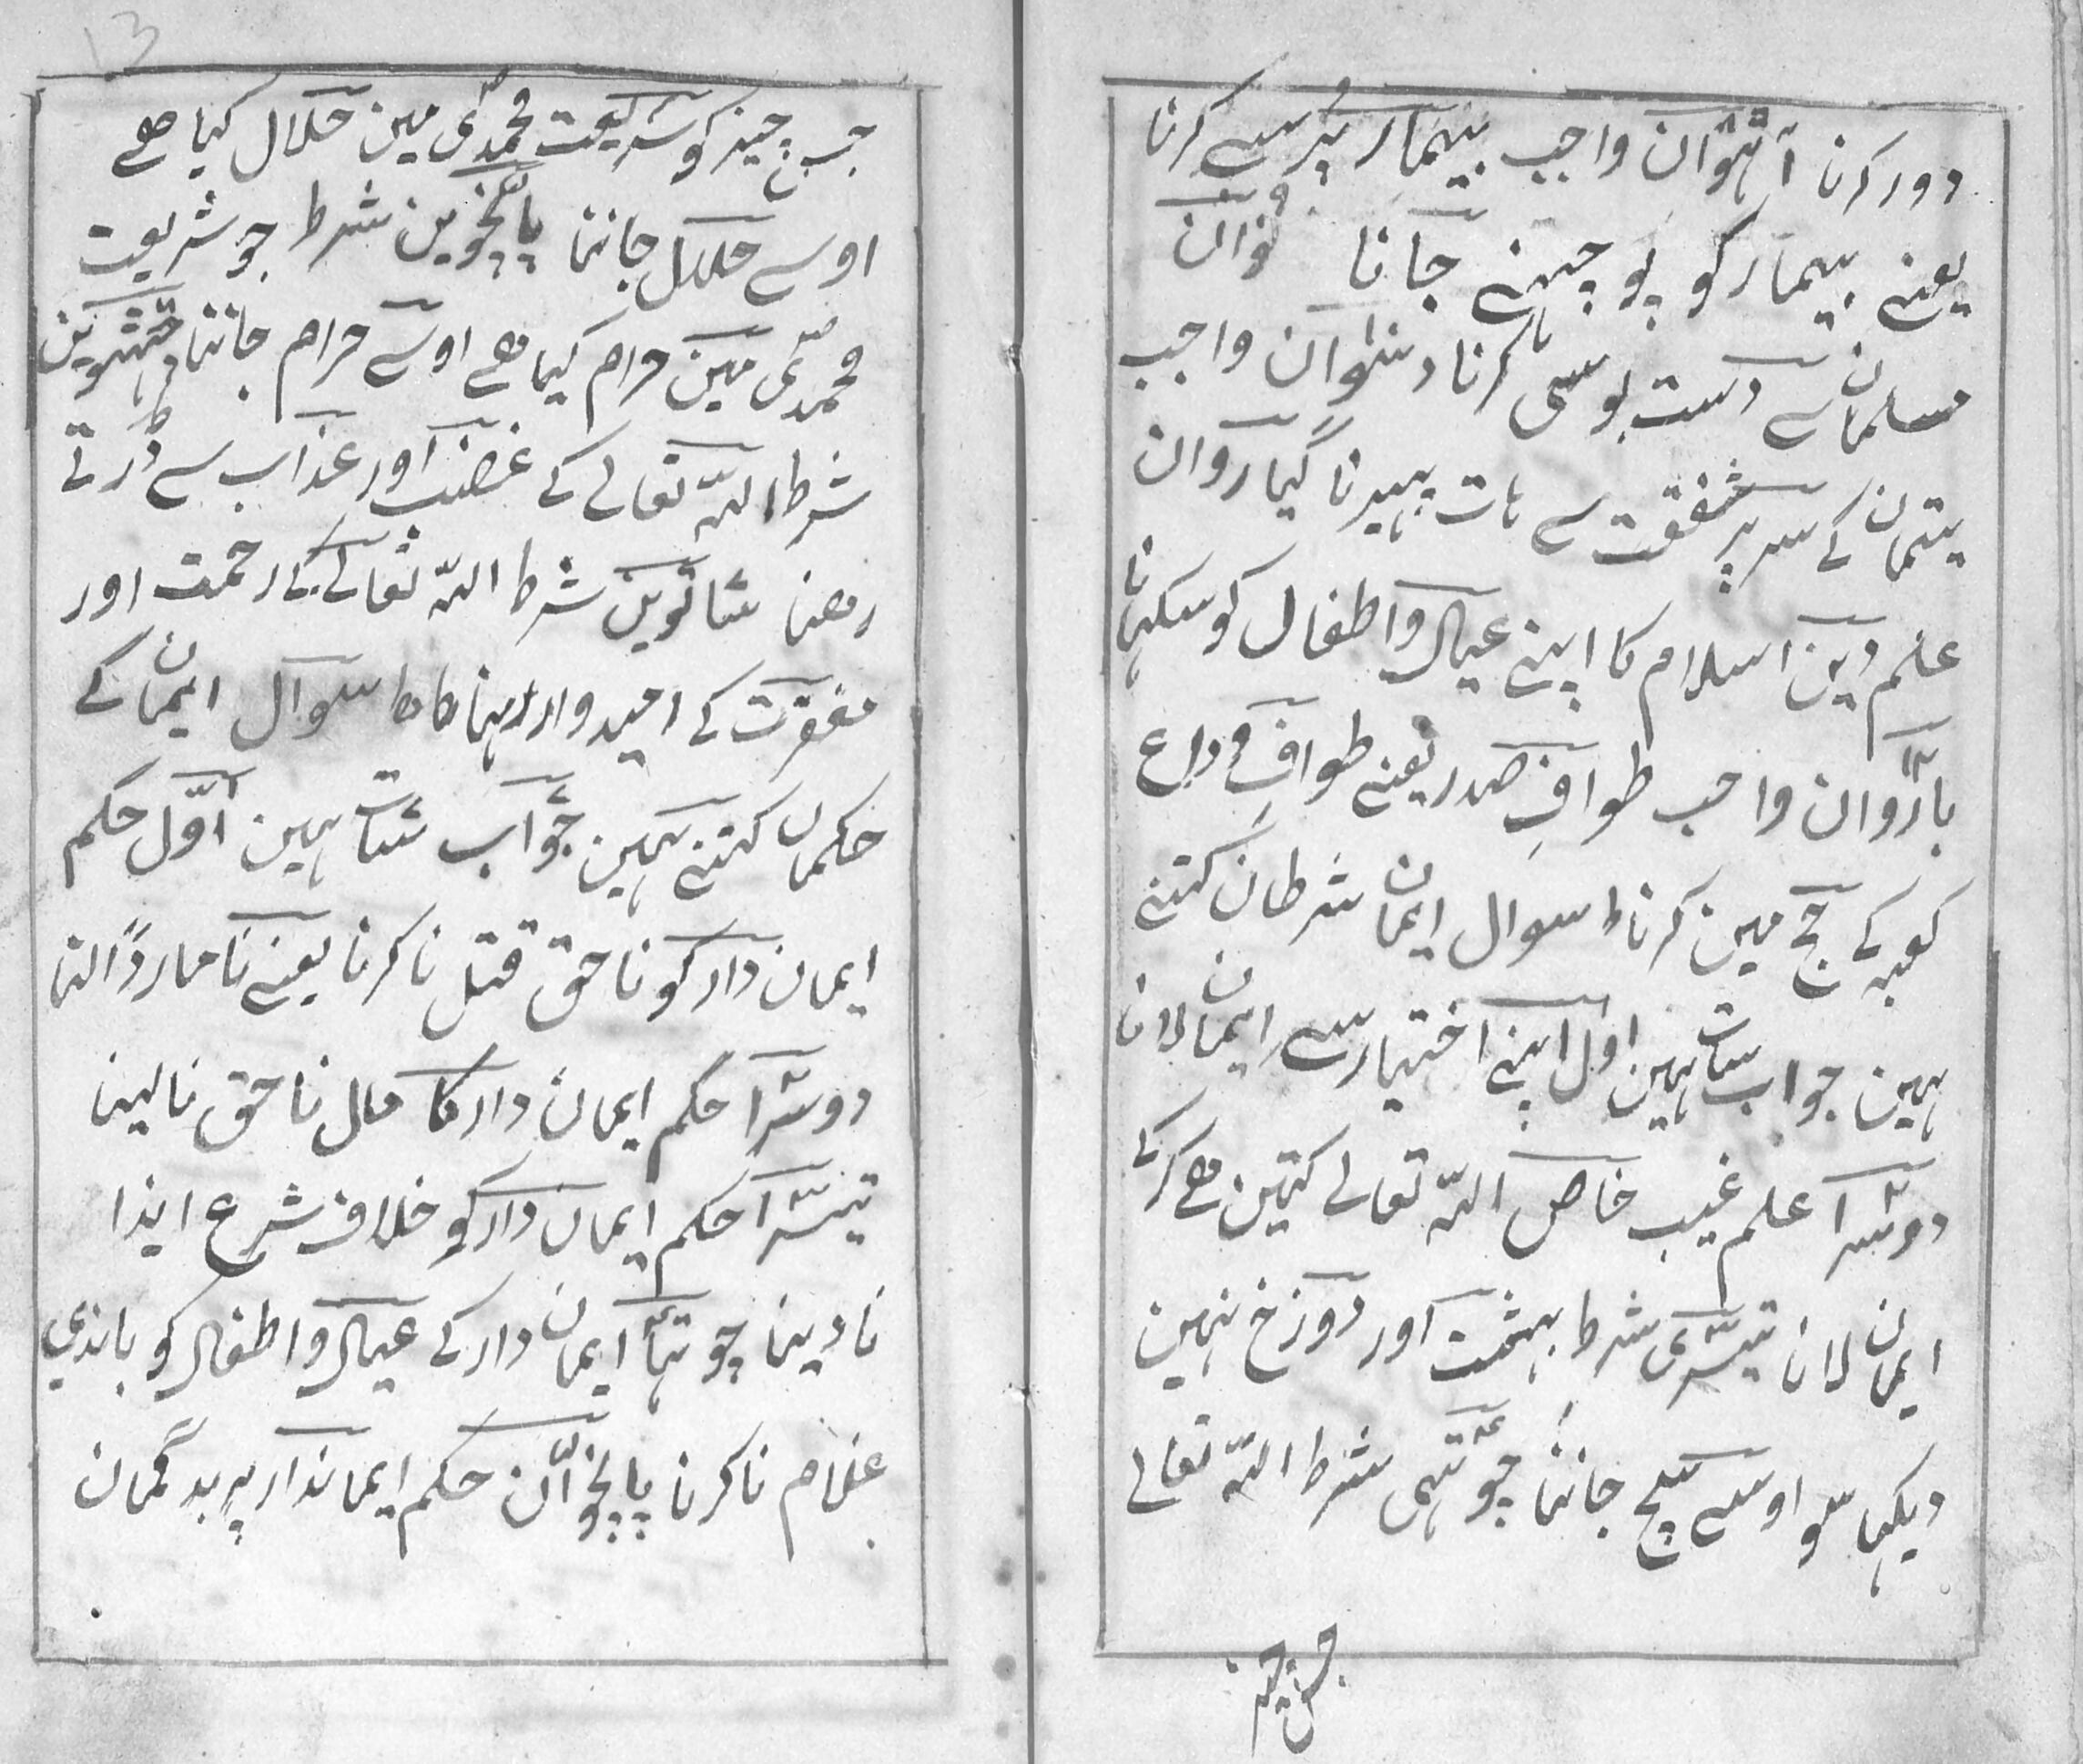 دور کرنا آٹہوان واجب بیمار پرسے کرنا
یعنے بیمار کو پوچہنے جانا نوان
مسلمان سے دست بوسی کرنا دسوان واجب
یتمان کے سر پر شفقت سے ہات پہیرنا گیاروان
علم دین اسلام کا اپنے عیال و اطفال کو سکہانا
باروان واجب طوافِ صدر یعنے طوافِ وداع
کعبہ کے حج مین کرنا سوال ایمان شرطان کتنے
ہین جواب سات ہین اول اپنے اختیار سے ایمان لانا
دوسرا علم غیب خاص اللہ تعالے کتین ھے کرکے
ایمان لانا تیسری شرط بہشت اور دوزخ نہین
دیکہا سو اوسے سچ جاننا چوتہی شرط اللہ تعالے
جس چیز
13
جس چیز کو شریعت محمدی مین حلال کیا ھے
اوسے حلال جاننا پانچوین شرط جو شریعت
محمدی مین حرام کیا ھے اوسے حرام جاننا چہٹوین
شرط اللہ تعالے کے غضب اور عذاب سے ڈرتے
رھنا ساتوین شرط اللہ تعالے کے رحمت اور
مغفرت کے امیدوار رہنا سوال ایمان کے
حکمان کتنے ہین جواب سات ہین اوّل حکم
ایمان دار کو ناحق قتل نا کرنا یعنے نا مار ڈالنا
دوسرا حکم ایمان دار کا مال ناحق نا لینا
تیسرا حکم ایمان دار کو خلاف شرع ایذا
نا دینا چوتہا ایمان دار کے عیال و اطفال کو باندی
غلام نا کرنا پانچوان حکم ایماندار پر بد گمان